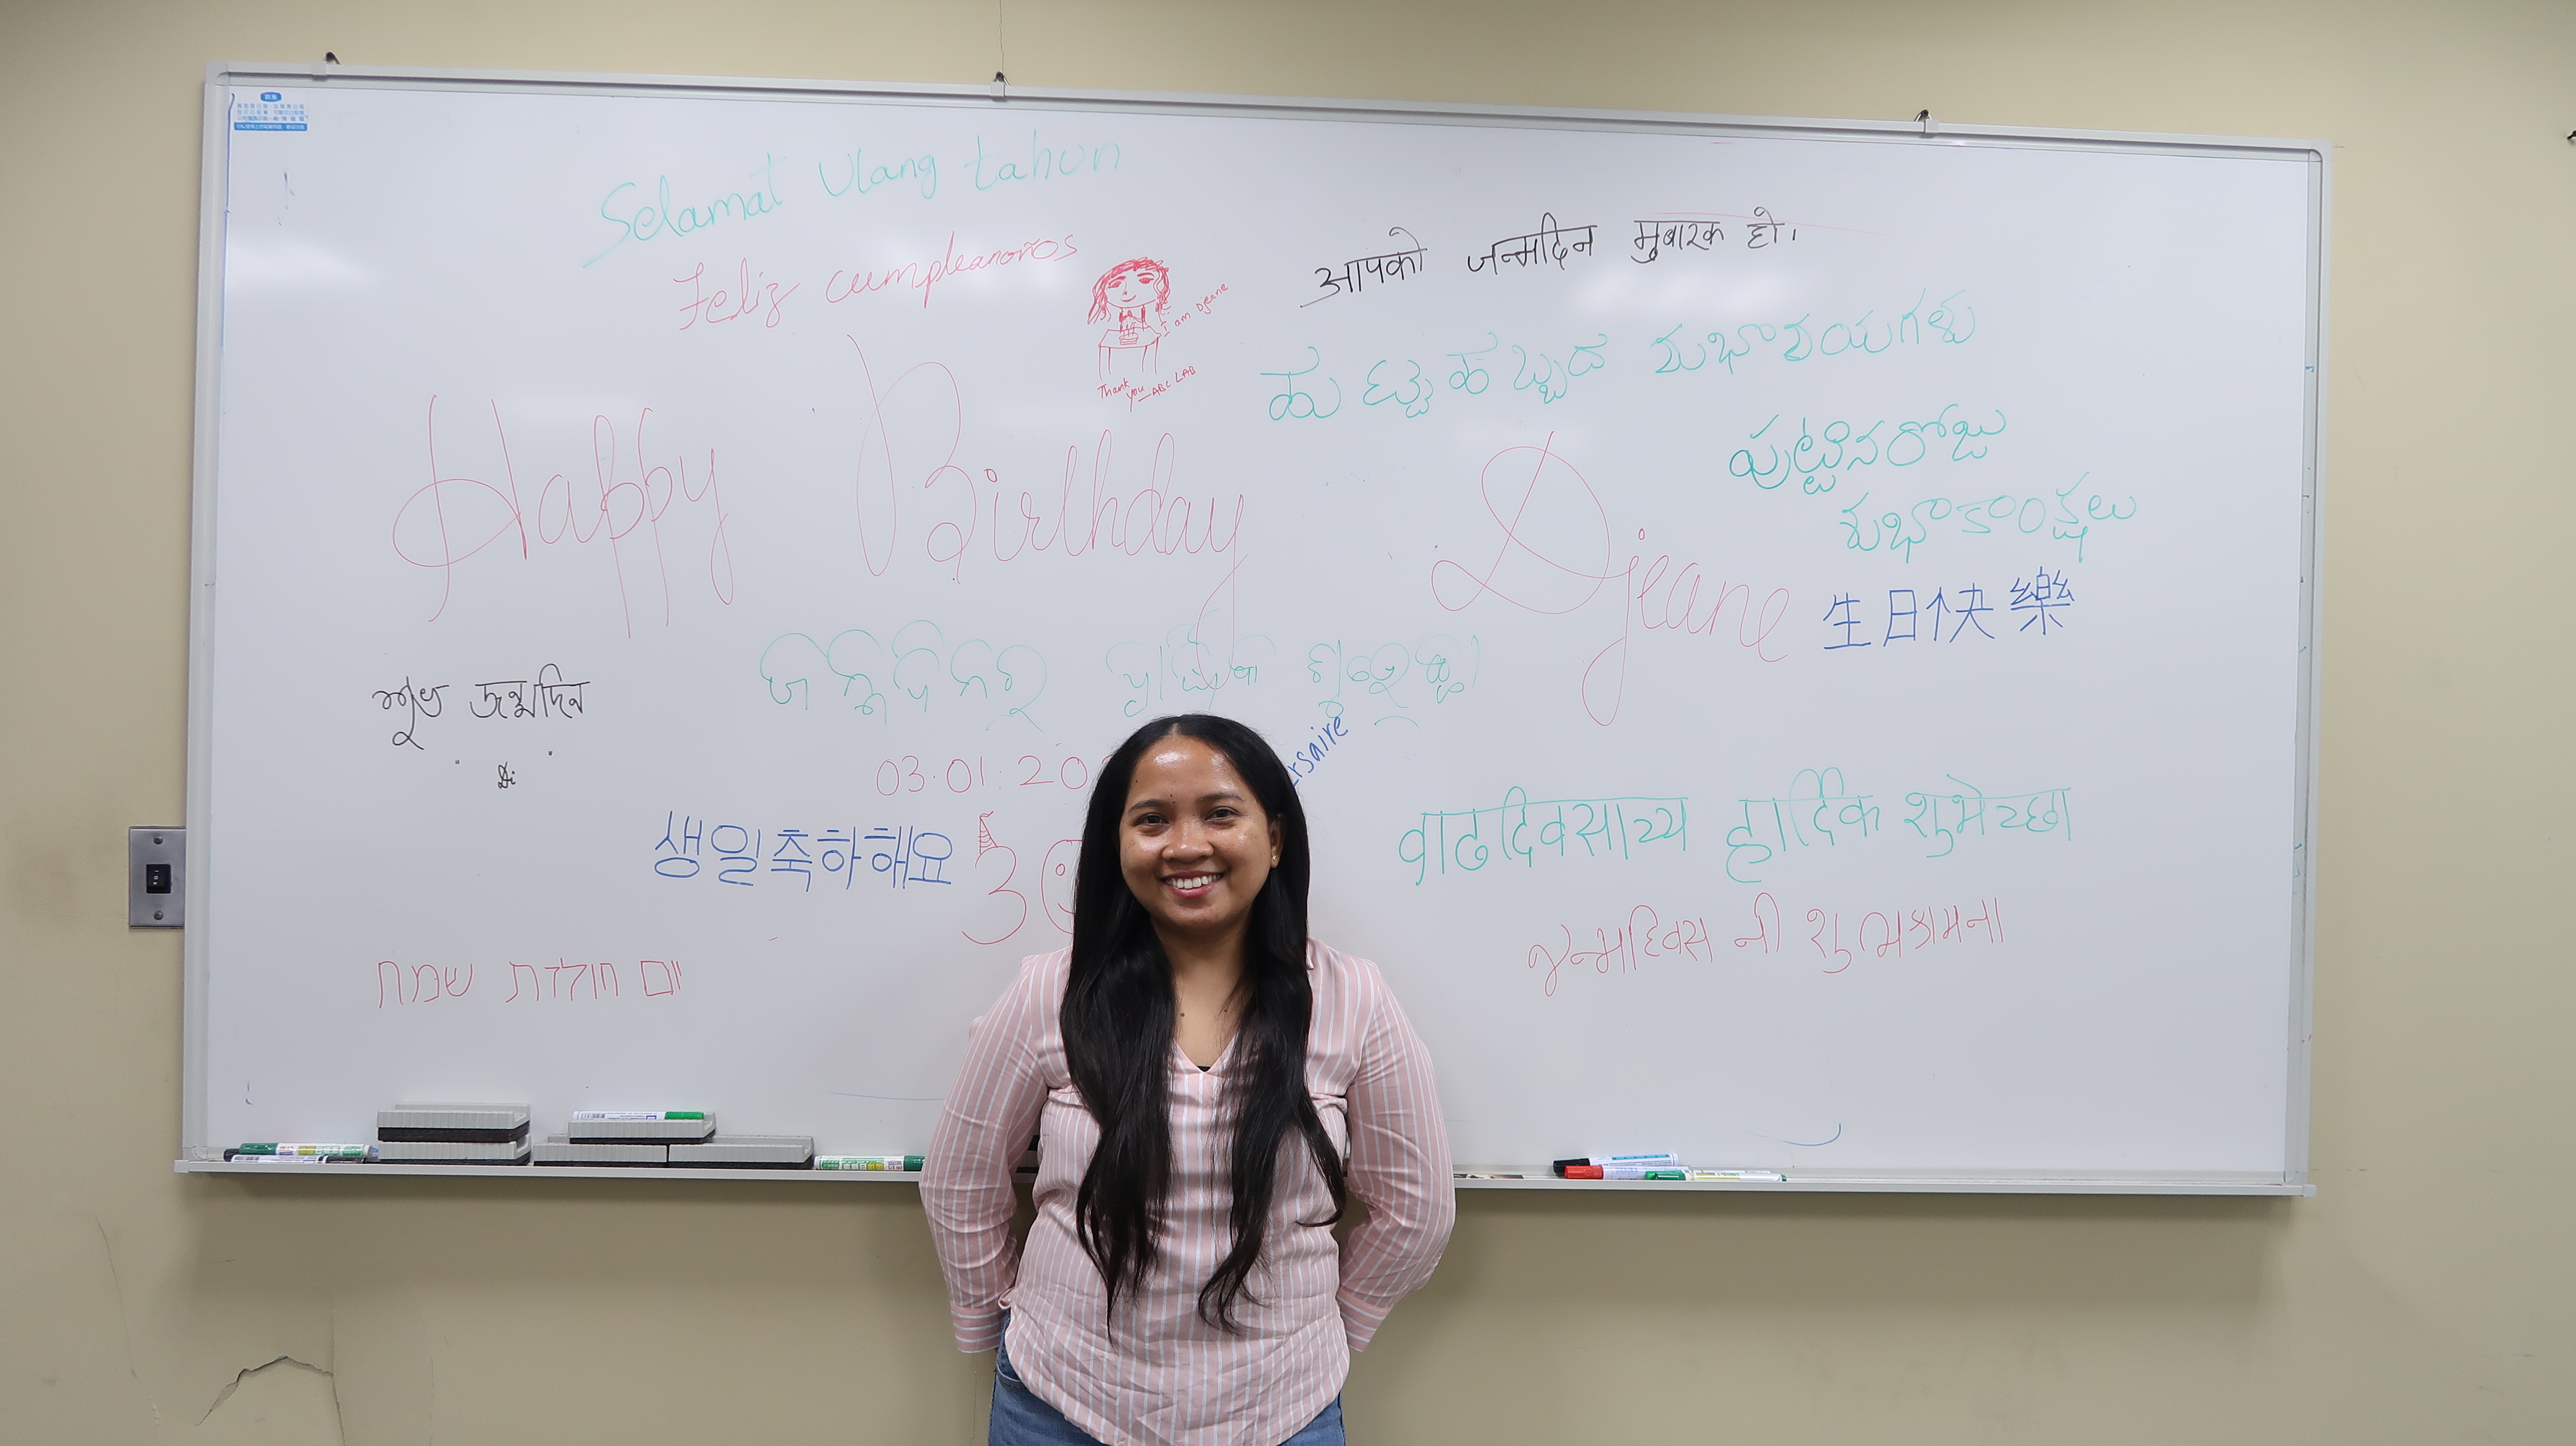 Selamat Ulang tahun
Feliz cumpleanoños
I am Djeane
Thank
you ABC LAB
आपको जन्मदिन मुबारक हो।
ಹುಟ್ಟುಹಬ್ಬದ ಶುಭಾಶಯಗಳು
Happy Birthday Djeane
పుట్టినరోజు
శుభాకాంక్షలు
生日快樂
ଜନ୍ମଦିନର
শুভ জন্মদিন
Di
03.01.20
ersaire
생일축하해요
30
वाढदिवसाच्य हार्दिक शुभेच्छा
જન્મદિવસ ની શુભકામના
יום הולדת שמח